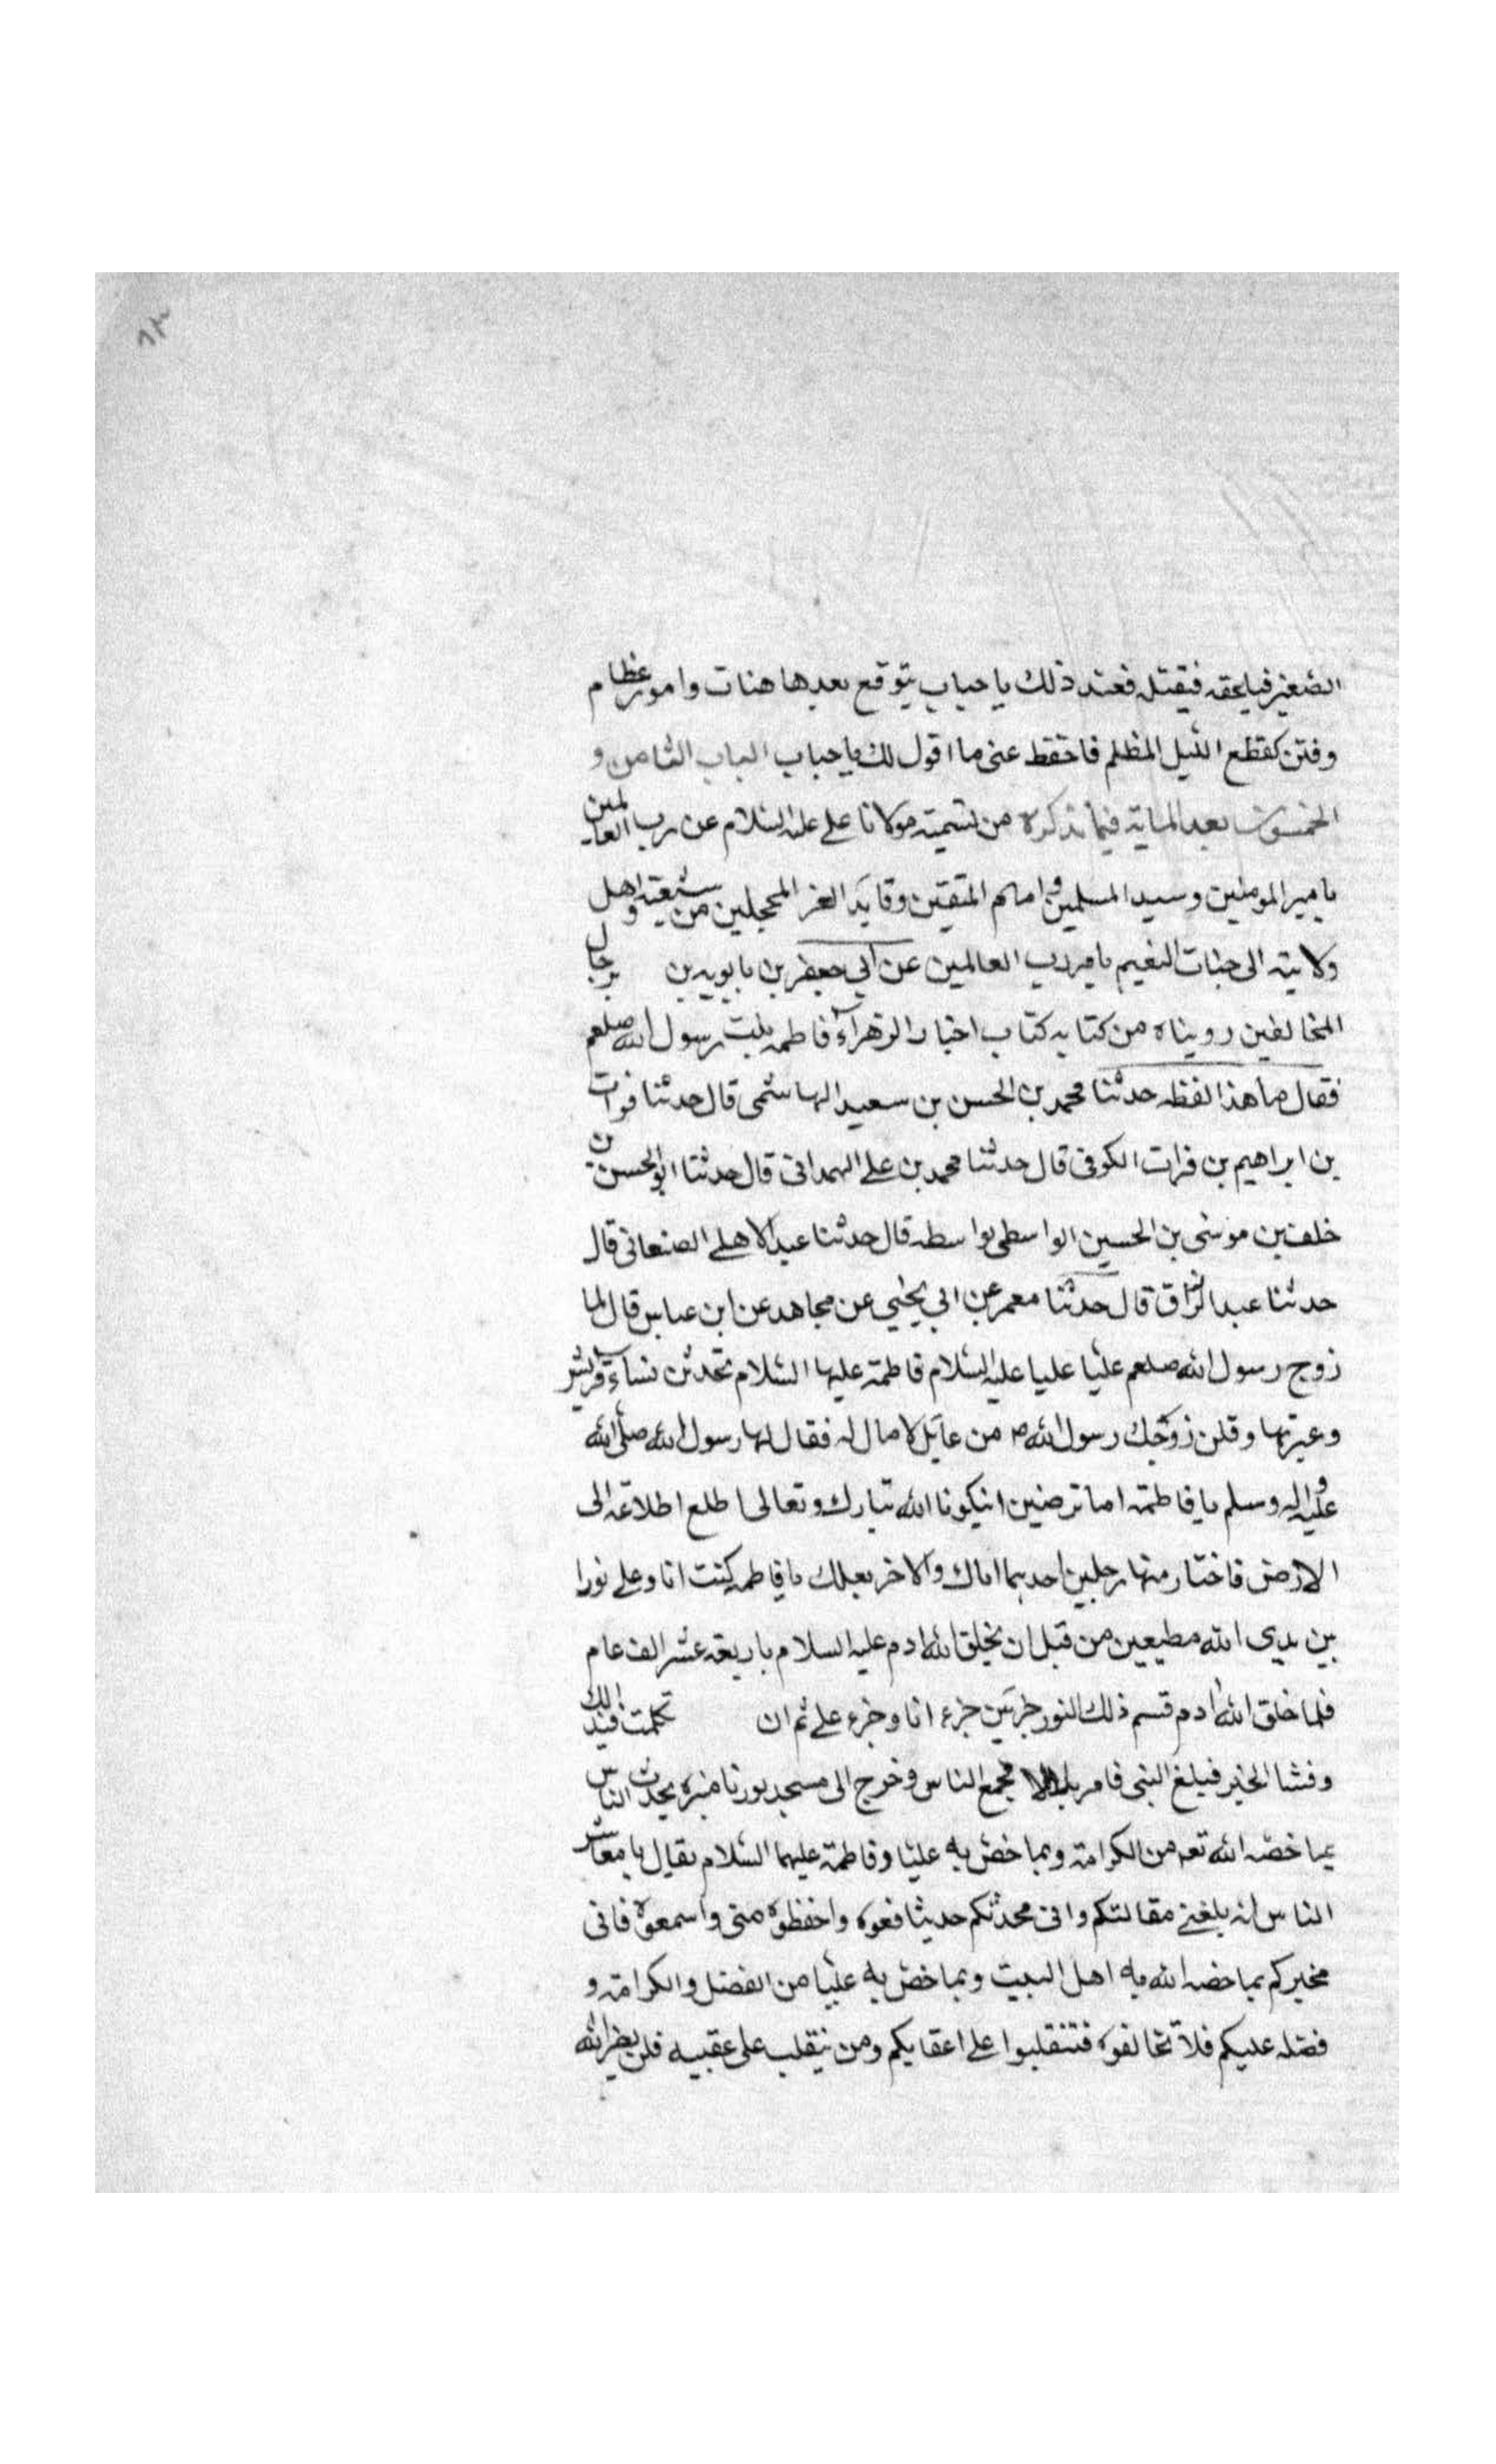 ٨٣
الصغير فيلحقه فيقتله فعند ذلك يا حباب يتوقع بعدها هنات وامور عظام
وفتن كقطع الليل المظلم فاحتفظ عنى ما اقول لك يا حباب الباب الثامن و
الخمسون بعد المايه فيما نذكره من تسميته مولانا على عليه السلام عن رب العالمين
بامير المومنين وسيد المسلمين وامام المتقين وقايد الغر المحجلين من شيعته واهل
ولايته الى جنات النعيم بامر رب العالمين عن ابي جعفر بن بابويه بن برجال
المخالفين رويناه من كتابه كتاب اخبار الزهرآء فاطمه بنت رسول الله صلعم
فقال ما هذا لفظه حدثنا محمد بن الحسن بن سعيد الهاشمى قال حدثنا فرات
بن ابراهيم بن فرات الكوفى قال حدثنا محمد بن على الهمدانى قال حدثنا ابو الحسن بن
خلف بن موسى بن الحسين الواسطى بواسطه قال حدثنا عبد الاعلى الصنعانى قال
حدثنا عبد الرزاق قال حدثنا معمر عن ابي يحيي عن مجاهد عن ابن عباس قال لما
زوج رسول الله صلعم عليا عليا عليه السلام فاطمة عليها السلام تحدثن نساء قريش
وعيرتها وقلن زوجك رسول الله ص من عايل لا مال له فقال لها رسول الله صلى الله
عليه واله وسلم يا فاطمة اما ترضين انيكونا الله تبارك وتعالى اطلع اطلاعه الى
الارض فاختار منها رجلين احدهما اباك والاخر بعلك يا فاطمه كنت انا وعلى نورا
بين يدي الله مطيعين من قبل ان يخلق الله ادم عليه السلام باربعه عشر الف عام
فلما خلق الله ادم قسم ذلك النور جزئين جزء انا وجزء على ثم ان تكلمت فى ذلك
وفشا الخبر فبلغ النبى فامر بلالا فجمع الناس وخرج الى مسجده ورقا منبره يحدث الناس
بما خصه الله تعه من الكرامة وبما خص به عليا وفاطمة عليهما السلام فقال يا معاشر
الناس انه بلغنى مقالتكم وانى محدثكم حديثا فعوه واحفظوه منى واسمعوه فانى
مخبركم بما خصه الله به اهل البيت وبما خص به عليا من الفضل والكرامة و
فضله عليكم فلا تخالفوه فتنقلبوا على اعقابكم ومن ينقلب على عقبيه فلن يضر الله